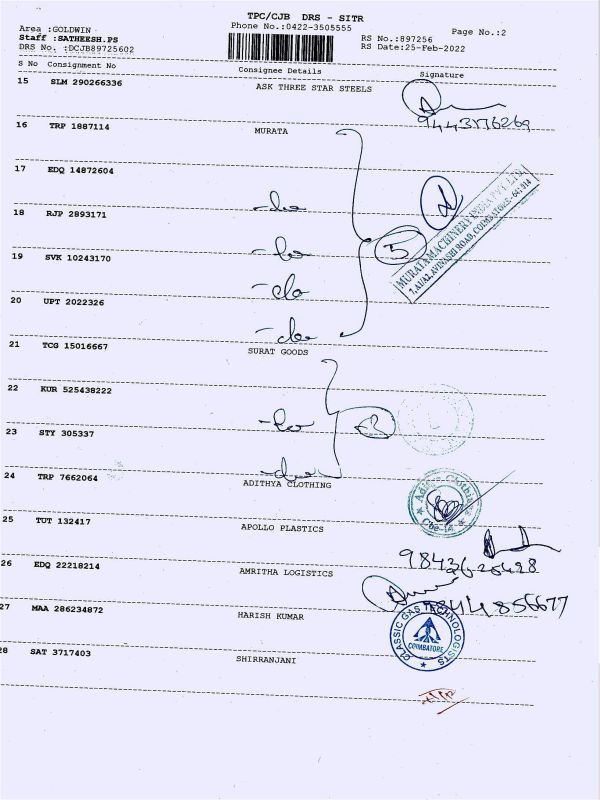 TPC/CJB DRS - SITR
Area :GOLDWIN Phone No.:0422-3505555 Page No.:2
Staff :SATHEESH.PS RS No.:897256
DRS No. :DCJB89725602 RS Date:25-Feb-2022
S No Consignment No Consignee Details Signature
15 SLM 290266336 ASK THREE STAR STEELS
16 TRP 1887114 MURATA
17 EDQ 14872604
-do
18 RJP 2893171
-do
19 SVK 10243170 5
-do
20 UPT 2022326
-do
21 TCG 15016667 SURAT GOODS
22 KUR 525438222
-do
23 STY 305337
-do
24 TRP 7662064 ADITHYA CLOTHING
25 TUT 132417 APOLLO PLASTICS
26 EDQ 22218214 AMRITHA LOGISTICS
27 MAA 286234872 HARISH KUMAR
28 SAT 3717403 SHIRRANJANI
MURATA MACHINERY INDIA PVT. LTD.
AVINASHI ROAD, COIMBATORE - 641 014
CLASSIC GAS TECHNOLOGISTS
COIMBATORE